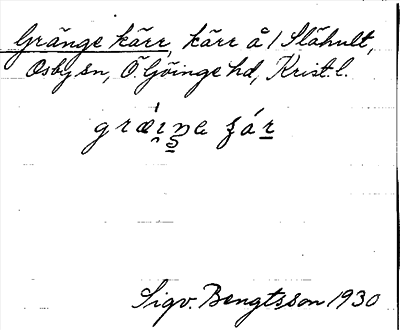 Gränge kärr, kärr å / Slähult,
Osby sn, Ö. Göinge hd, Krist. l.
Sigv. Bengtsson 1930